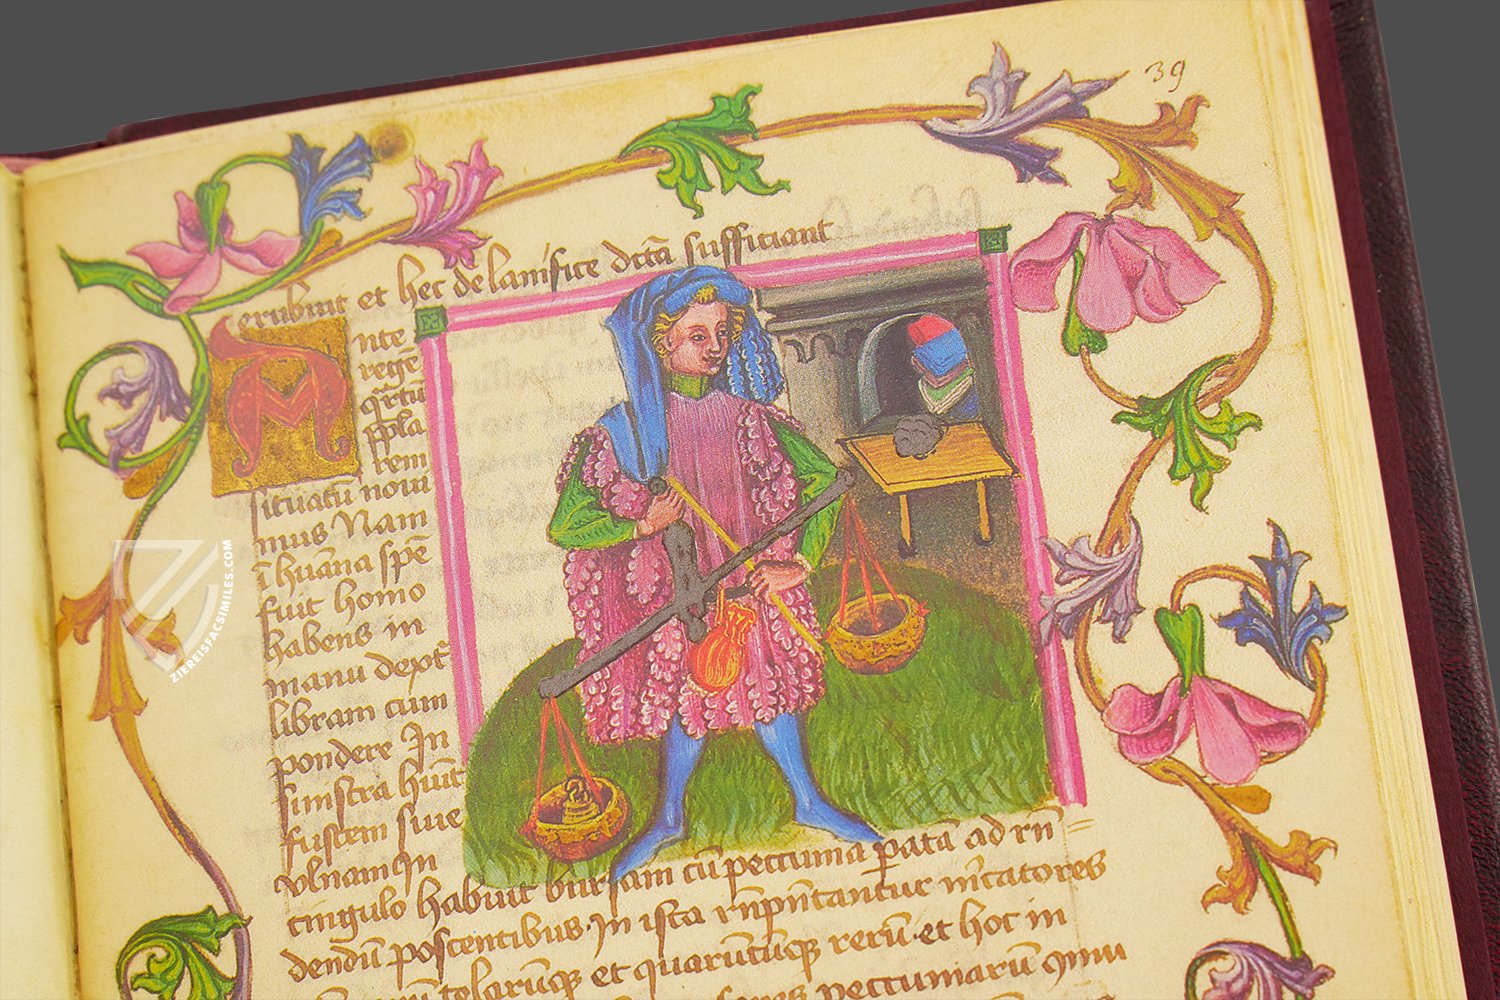 39
erubuit et hec de lanifice dcta sufficiant
Ante
regē
qrtū
ppla
rem
situatū noui
mus Nam
ī huāna spē
fuit homo
habens in
manu dext
libram cum
pondere In
sinistra huīt
fustem siue
vlnam In
cingulo habuit bursam cū peccunia pata ad
dendū poscentibus. In ista rn̄pn̄tantur mcatores
telarūq et quarūcūq rerū. et hoc in
peccuniarū
ZIEREISFACSIMILES.COM